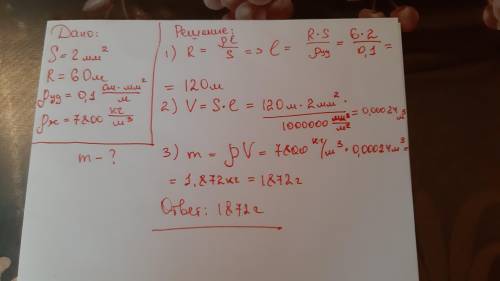 Дано:
S = 2 мм²
R = 6 Ом
ρуд = 0,1 Ом·мм²/м
ρж = 7800 кг/м³
m - ?
Решение:
1) R = ρℓ/S => ℓ = R·S/ρуд = 6·2/0,1 =
= 120м
2) V = S·ℓ = 120м·2мм²/1000000 мм²/м² = 0,00024 м³
3) m = ρV = 7800 кг/м³ · 0,00024м³ =
= 1,872кг = 1872г
Ответ: 1872г